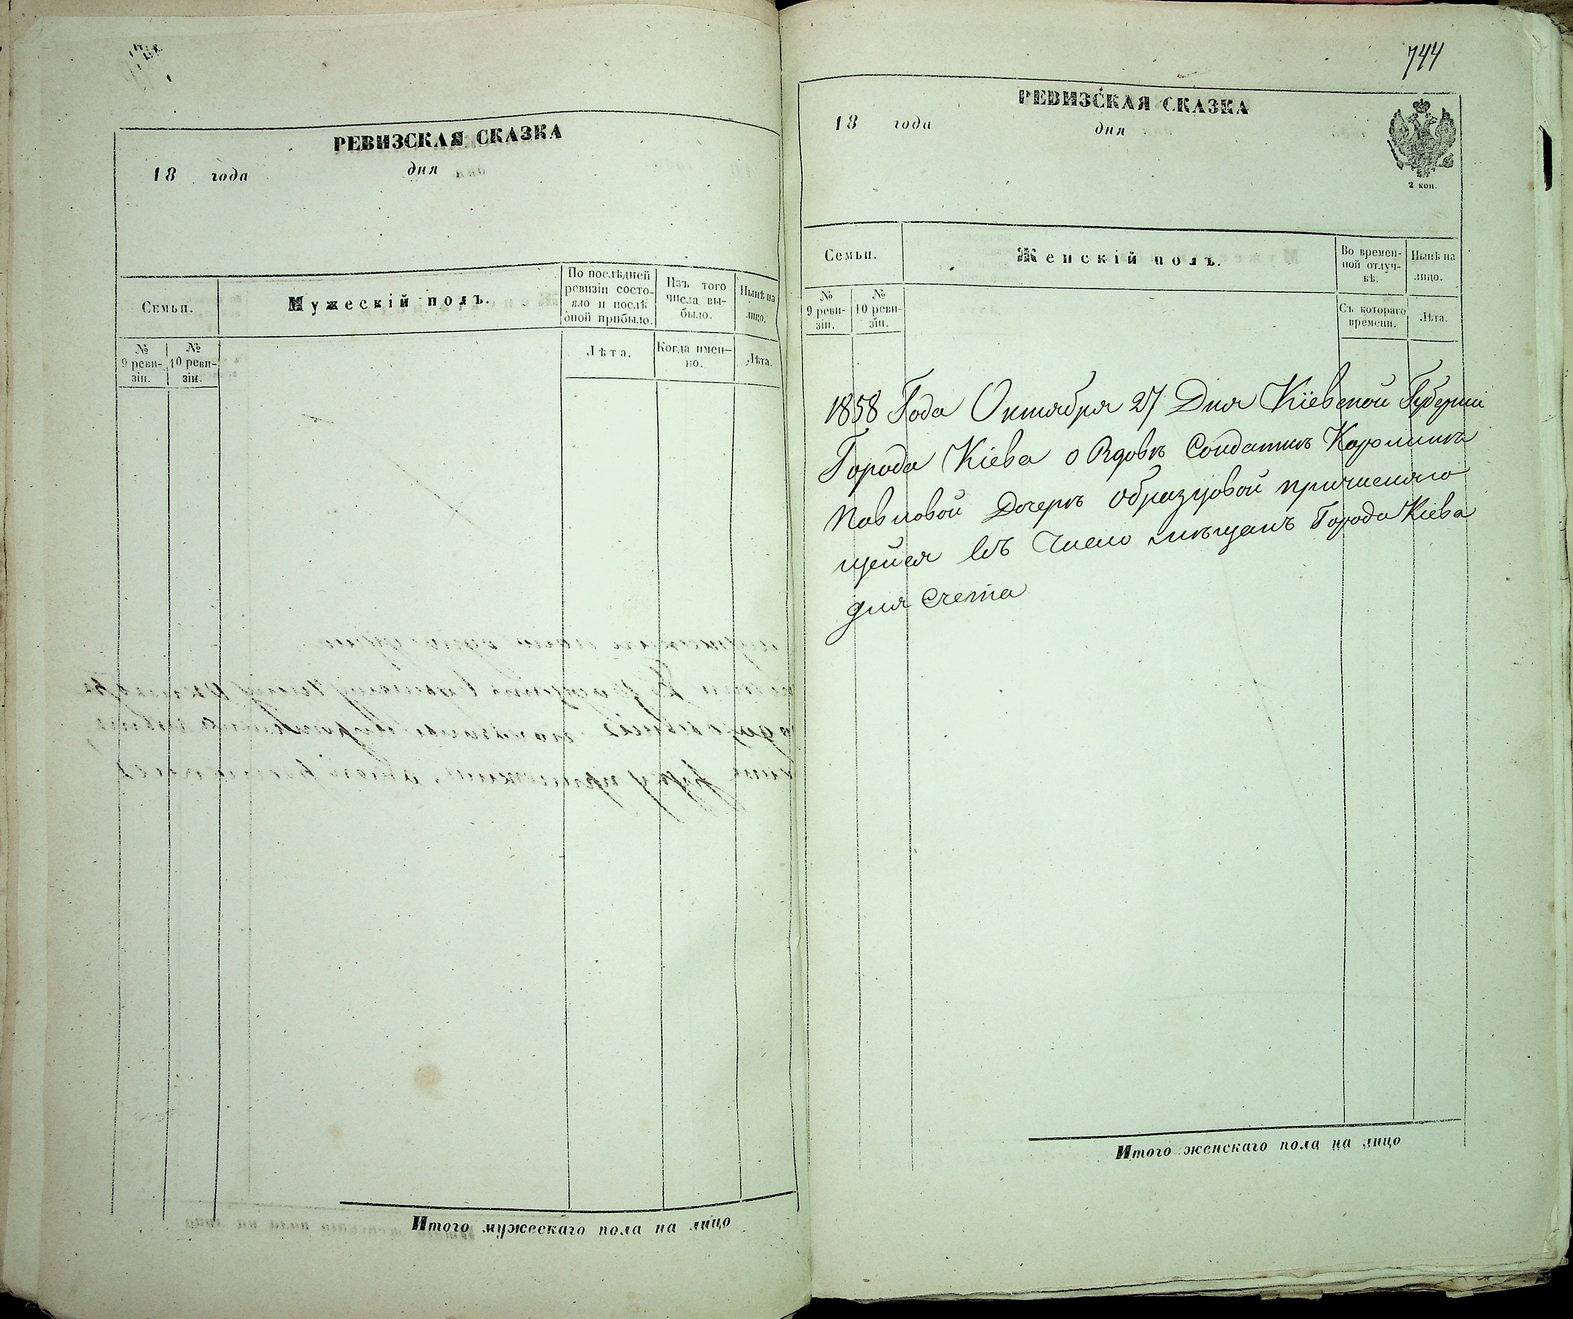 РЕВИЗСКАЯ СКАЗКА
18 года дня
Семьи.
Мужескій полъ.
По послѣдней
ревизіи состо-
яло и послѣ
оной прибыло.
Изъ того
числа вы-
было.
Нынѣ на
лицо.
№
9 реви-
зіи.
№
10 реви-
зіи.
Лѣта.
Когда имен-
но.
Лѣта.
Итого мужескаго пола на лицо
744
РЕВИЗСКАЯ СКАЗКА
18 года дня
2 коп.
Семьи.
Женскій полъ.
Во времен-
ной отлуч-
кѣ.
Нынѣ на
лицо.
№
9 реви-
зіи.
№
10 реви-
зіи.
Съ котораго
времени.
Лѣта.
1858 Года Октября 27 Дня Кіевской Губерніи
Города Кіева о Вдовѣ Солдаткѣ Каролинѣ
Павловой Дочерѣ Образцовой причисляю
щейся въ число мѣщанъ Города Кіева
для счета
Итого женскаго пола на лицо